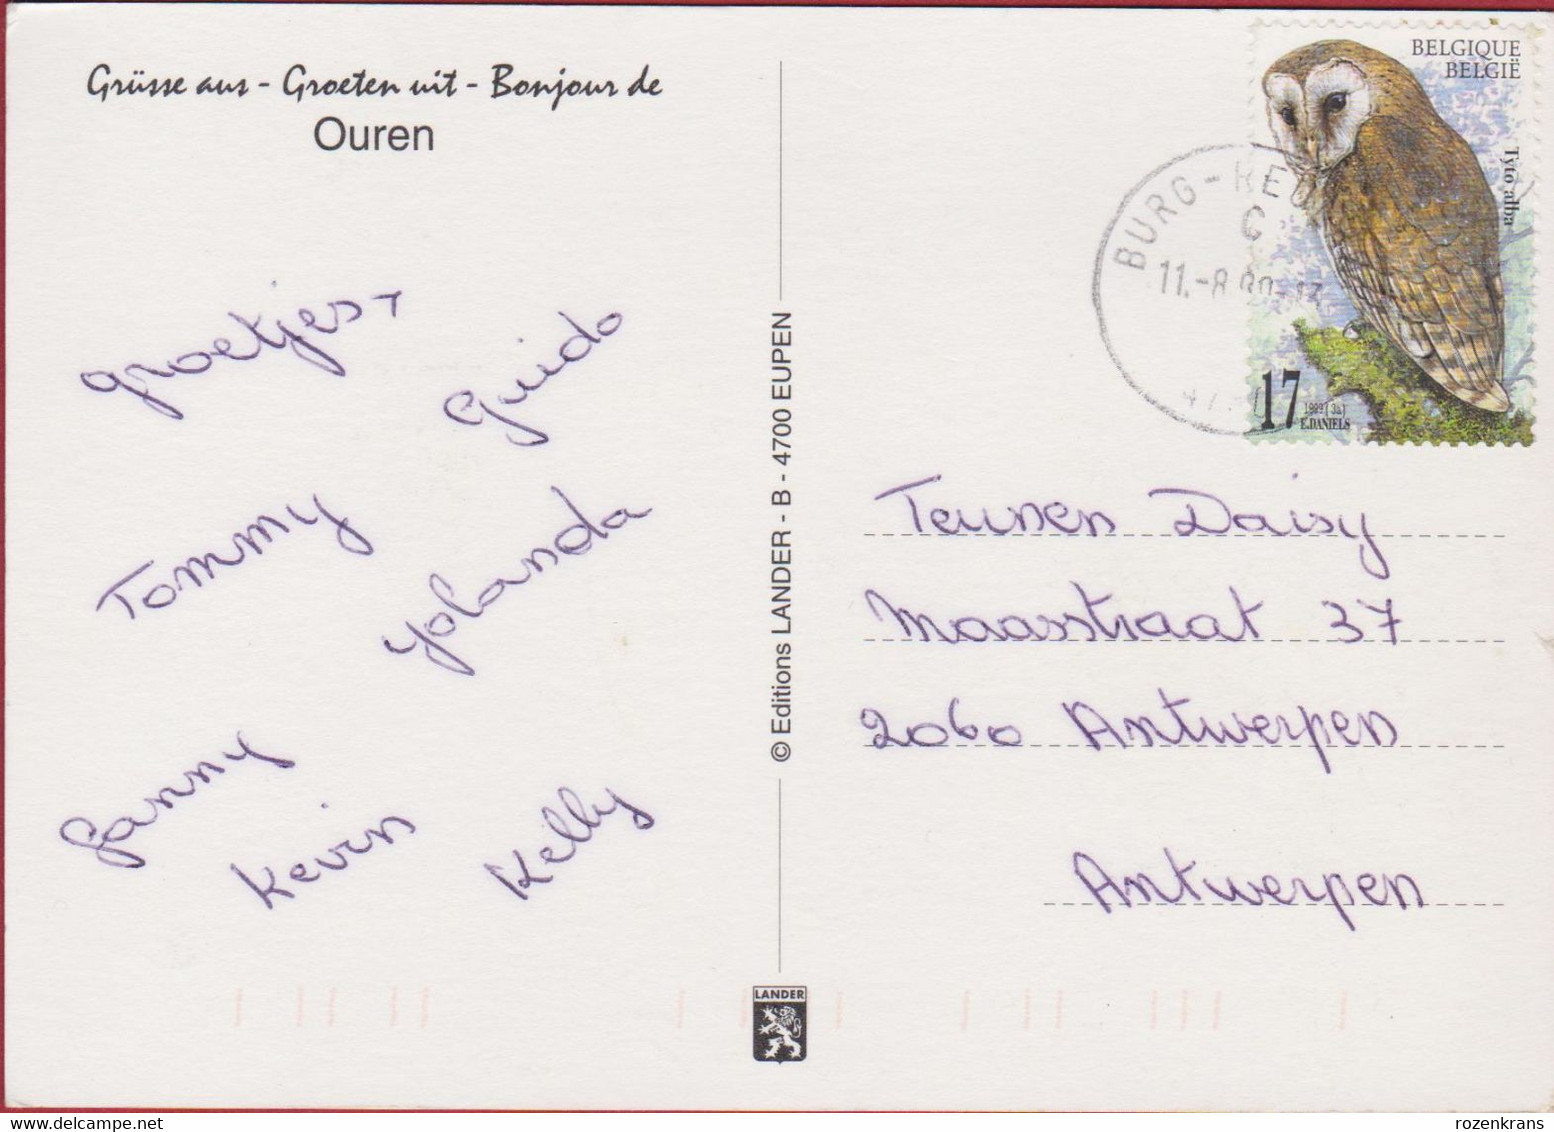 Grüsse aus - Groeten uit - Bonjour de
Ouren
groetjes
Guido
Tommy
Yolanda
Fanny
Kevin
Kelly
© Editions LANDER - B - 4700 EUPEN
LANDER
BELGIQUE
BELGIË
Tyto alba
17
1999 [3a]
E.DANIELS
BURG-REU
C
11.-8.99-13
Teunen Daisy
Maasstraat 37
2060 Antwerpen
Antwerpen
rozenkrans